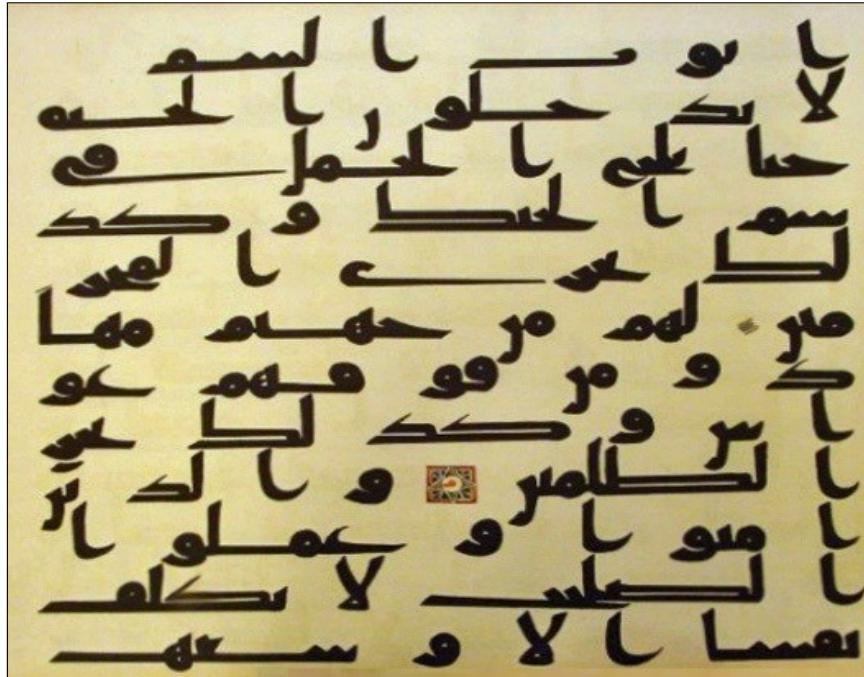 ابوب السم
لا يدخلون الجنه
حتا يلج الجمل في
سم الخيط وكذ
لك نجزي المجر
مين لهم من جهنم مها
د ومن فوقهم غو
اش وكذلك نجز
الظلمين والذين
امنوا وعملوا
الصلحت لا نكلف
نفسا الا وسعه